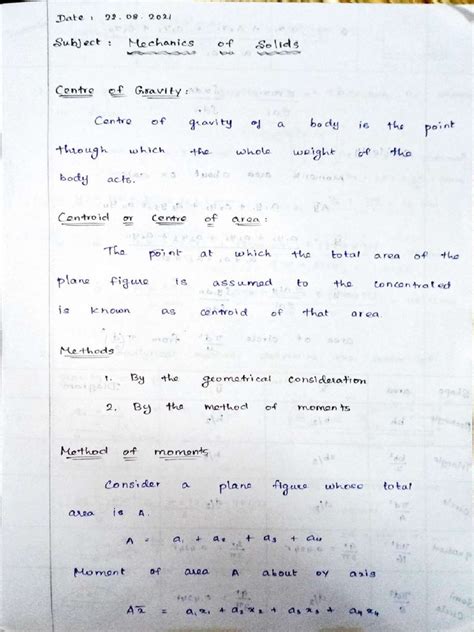 Date : 22.08.2021
Subject : Mechanics of Solids
Centre of Gravity :
Centre of gravity of a body is the point
through which the whole weight of the
body acts.
Centroid or centre of area :
The point at which the total area of the
plane figure is assumed to the concentrated
is known as centroid of that area.
Methods
1. By the geometrical consideration
2. By the method of moments
Method of moments
Consider a plane figure whose total
area is A.
A = a₁ + a₂ + a₃ + a₄
Moment of area A about oy axis
Ax̅ = a₁x₁ + a₂x₂ + a₃x₃ + a₄x₄